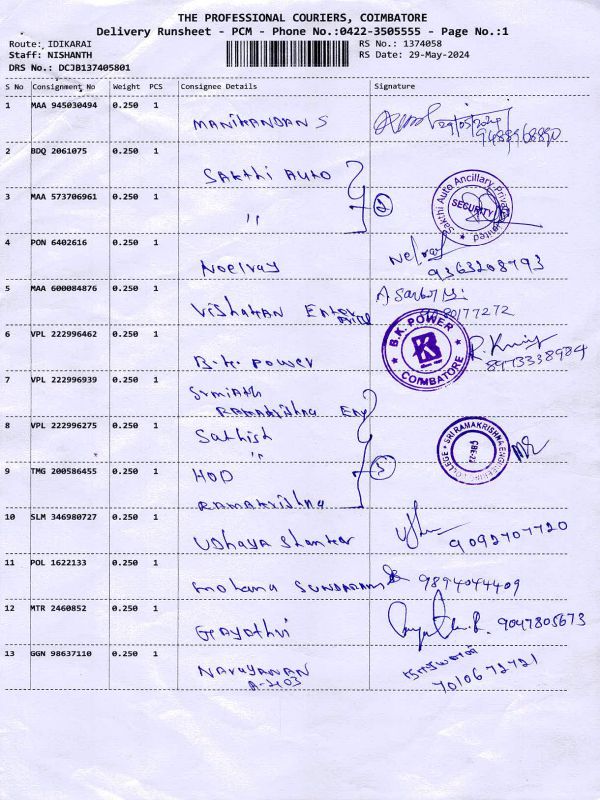 THE PROFESSIONAL COURIERS, COIMBATORE
Delivery Runsheet - PCM - Phone No.:0422-3505555 - Page No.:1
Route: IDIKARAI
Staff: NISHANTH
DRS No.: DCJB137405801
RS No.: 1374058
RS Date: 29-May-2024
S No Consignment No Weight PCS Consignee Details Signature
1 MAA 945030494 0.250 1 MANIKANDAN S 29/05/2024
9488968890
2 BDQ 2061075 0.250 1 SAKthi AUto
3 MAA 573706961 0.250 1 " 2
Sakthi Auto Ancillary Private Limited
SECURITY
4 PON 6402616 0.250 1 Noelray Nelray
9363208793
5 MAA 600084876 0.250 1 Vishakan
6 VPL 222996462 0.250 1 B.K. Power
B.K. POWER
COIMBATORE
8973338984
7 VPL 222996939 0.250 1
RAMAKrishna Eng
8 VPL 222996275 0.250 1 Sathish
"
3
SRI RAMAKRISHNA ENGINEERING COLLEGE
9 TMG 200586455 0.250 1 HOD
RAMAKrishna
10 SLM 346980727 0.250 1 Udhaya Shankar 9092707720
11 POL 1622133 0.250 1 Mohana SUNDARAM 9894044409
12 MTR 2460852 0.250 1 GAyathri 9047805673
13 GGN 98637110 0.250 1 NARAyANAN
7010672721